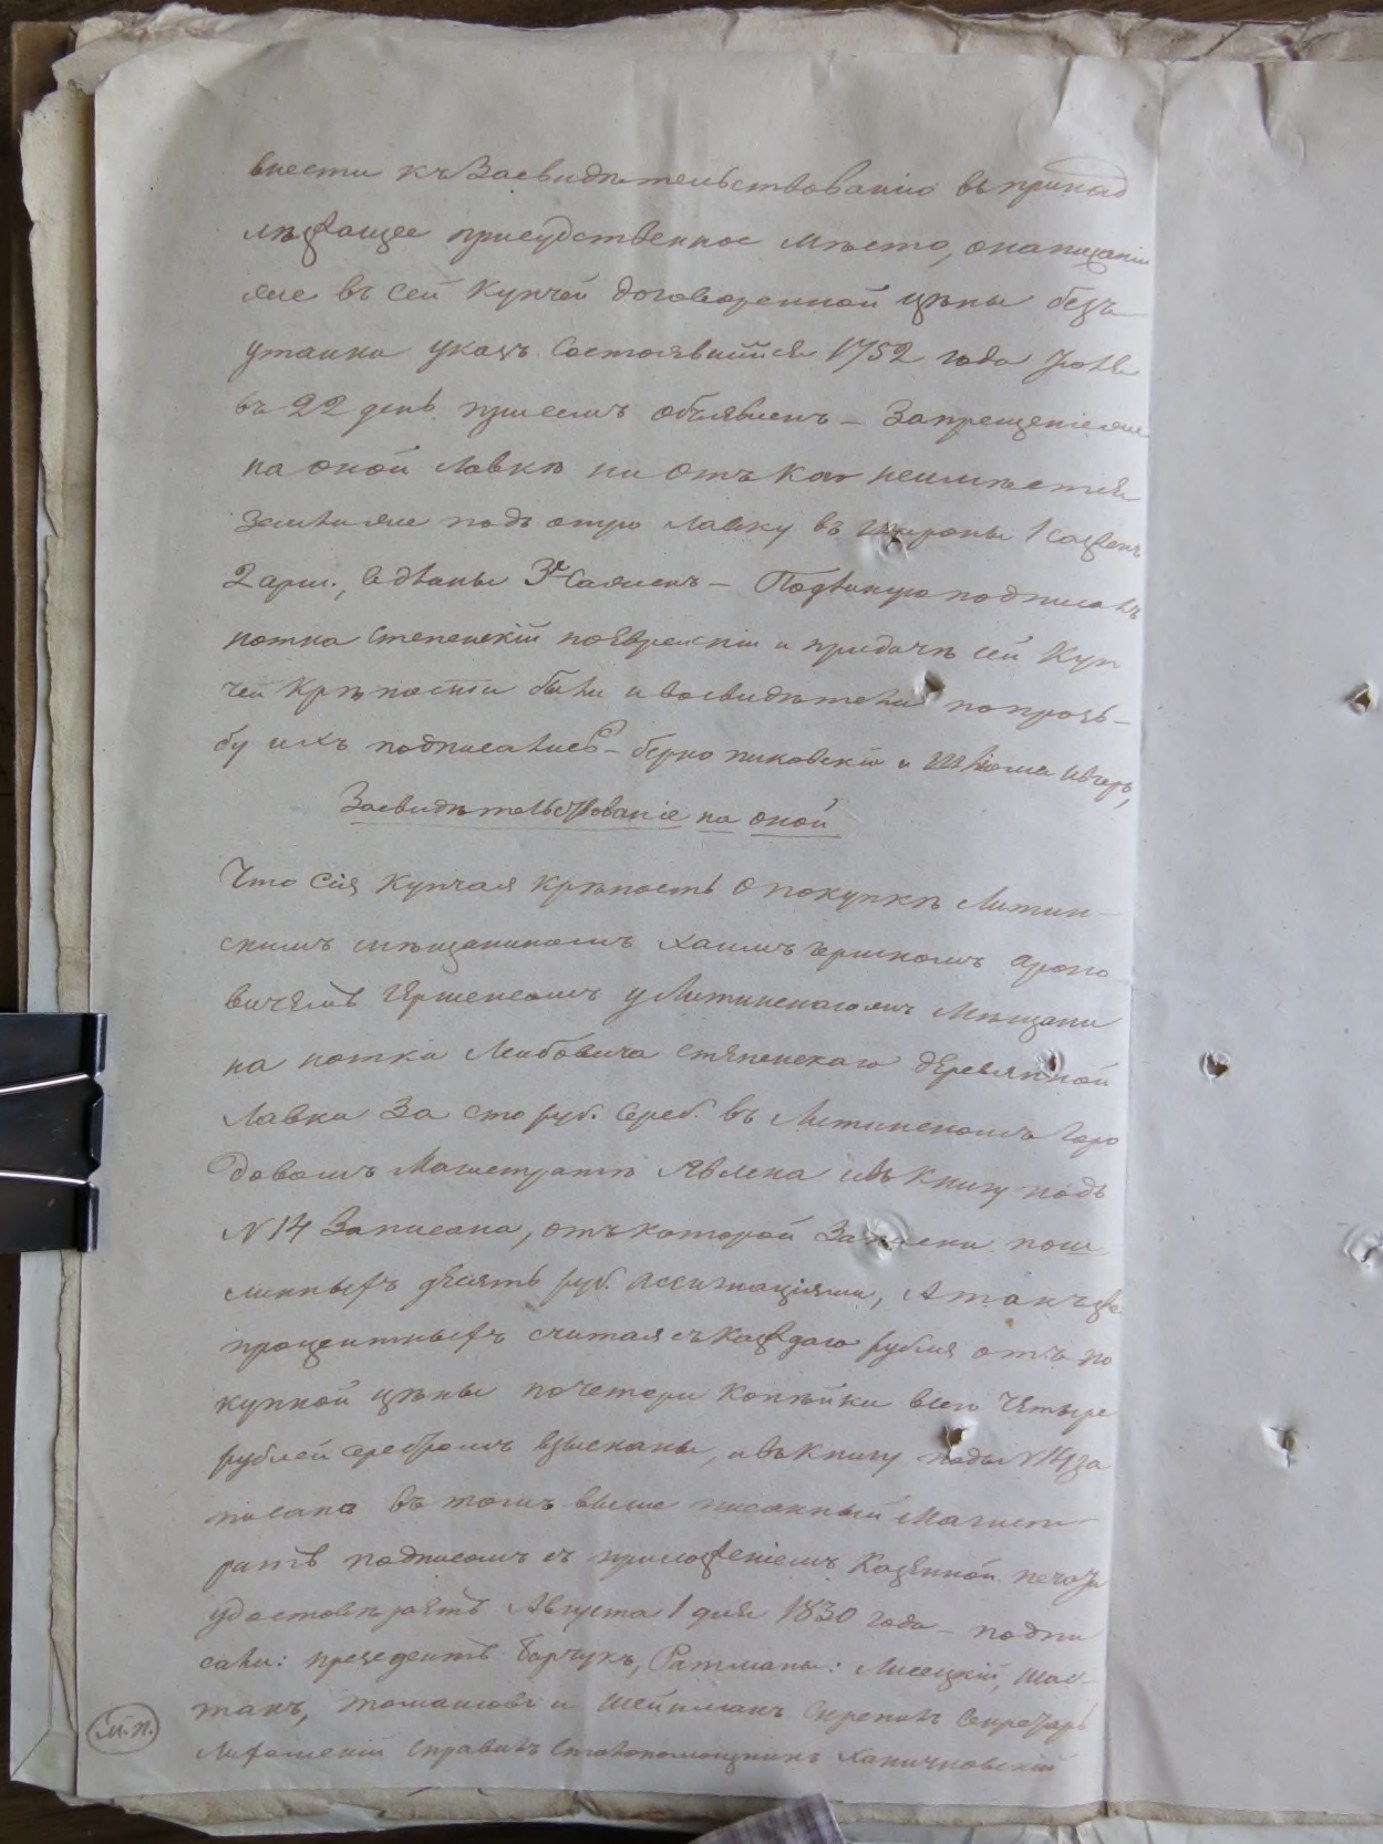 внести къ Засвидѣтельствованію въ принад
лѣжащее присудственное мѣсто, о напис
же въ сей Купчей договоренной цѣны безъ
утайки указъ Состоявшійся 1752 года Іюля
въ 22 день при семъ объявленъ – Запрещенія же
на оной Лавкѣ ни отъ кого неимѣется
Земли же подъ Лавку въ ширины 1 сажень
2 арш., въ длины 3 Сажень – Подлинную подписалъ
потка Степенскій и придачѣ сей Куп
чей Крѣпости были и свидѣтели по прозь–
бу ихъ подписались – Берко пиковскій и Шліома
Засвидѣтельствованіе на оной
Что Сія Купчая Крѣпость о покупкѣ Литин–
скимъ мѣщаниномъ хаимъ гершкомъ Ароно
вичемъ Гершенсомъ у Литинскаго жъ Мѣщани
на потки Лейбовича Степенскаго деревянной
Лавки За сто руб. Сереб. въ Литинскомъ Горо
довомъ Магистратѣ Явлена и въ Книгу подъ
N 14 Записана, отъ которой Записки пош
линныхъ десять руб. Ассигнаціями, А такъже
процентныхъ считая съ Каждаго рубля отъ по
купной цѣны по четери Копѣйки всего Четыре
рублей серебромъ взысканы, и въ Книгу подъ N 14 за
писано въ томъ выше писанный Магист–
ратъ подписомъ съ приложеніемъ Казенной печати
удостовѣряетъ Августа 1 дня 1830 года – подпи
сали: президентъ Борчукъ, Ратманы: Лисецкій,
и Шейнманъ Скрепилъ Секретарь
М. п.
Справилъ Столопомощникъ